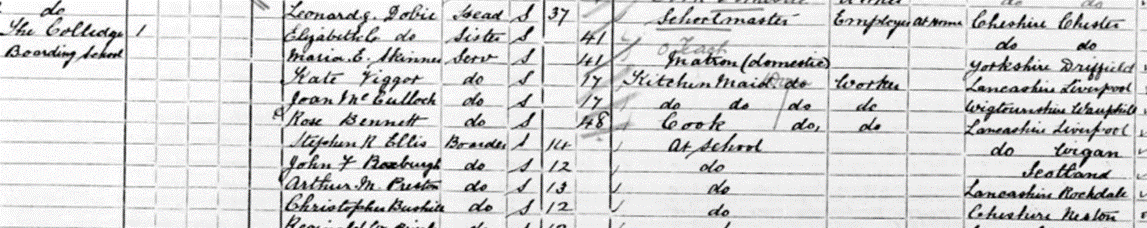 do do do
The Colledge 1 Leonard G. Dobie Head S 37 Schoolmaster Employer At Home Cheshire Chester
Boarding School Elizabeth C do Sister S 41 Teach do do
Maria E. Skinner Serv S 41 Matron (domestic) Yorkshire Driffield
Kate Viggor do S 17 Kitchen Maid do Worker Lancashire Liverpool
Joan McCulloch do S 17 do do do do Wigtownshire
Rose Bennett do S 48 Cook do, do Lancashire Liverpool
Stephen R Ellis Boarder S 14 At School do Wigan
John F Boxburgh do S 12 do Scotland
Arthur M. Preston do S 13 do Lancashire Rochdale
Christopher Bushell do S 12 do Cheshire Neston
Reginald